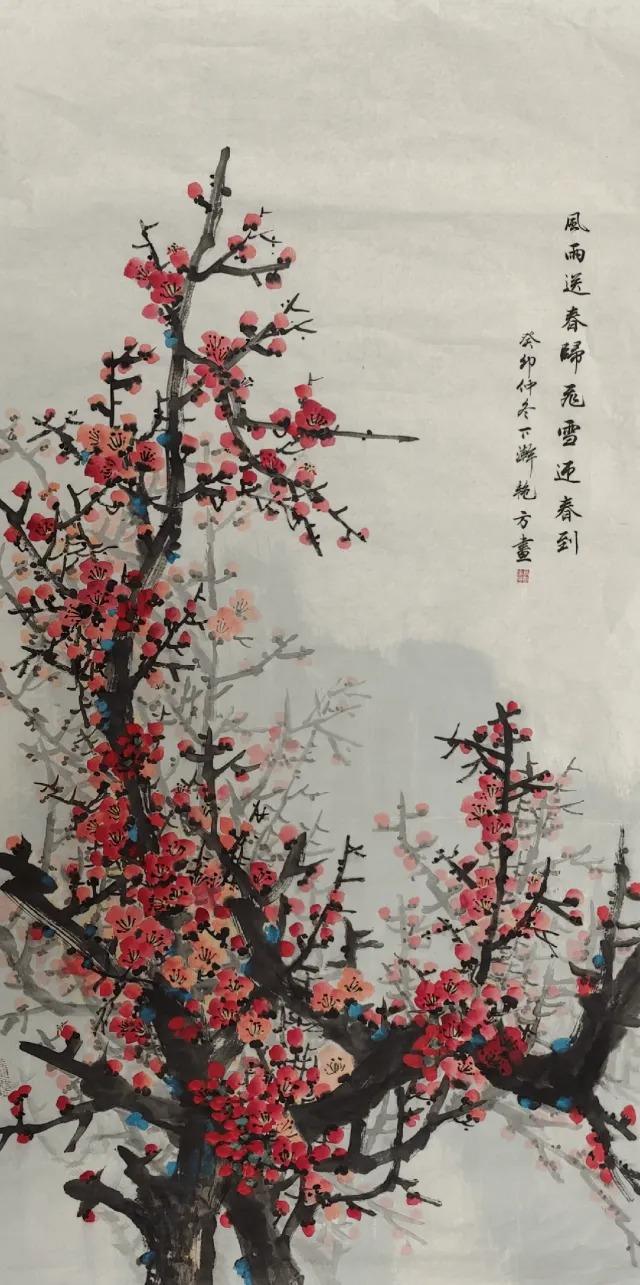 風雨送春歸飛雪迎春到
癸卯仲冬下澣艳方畫